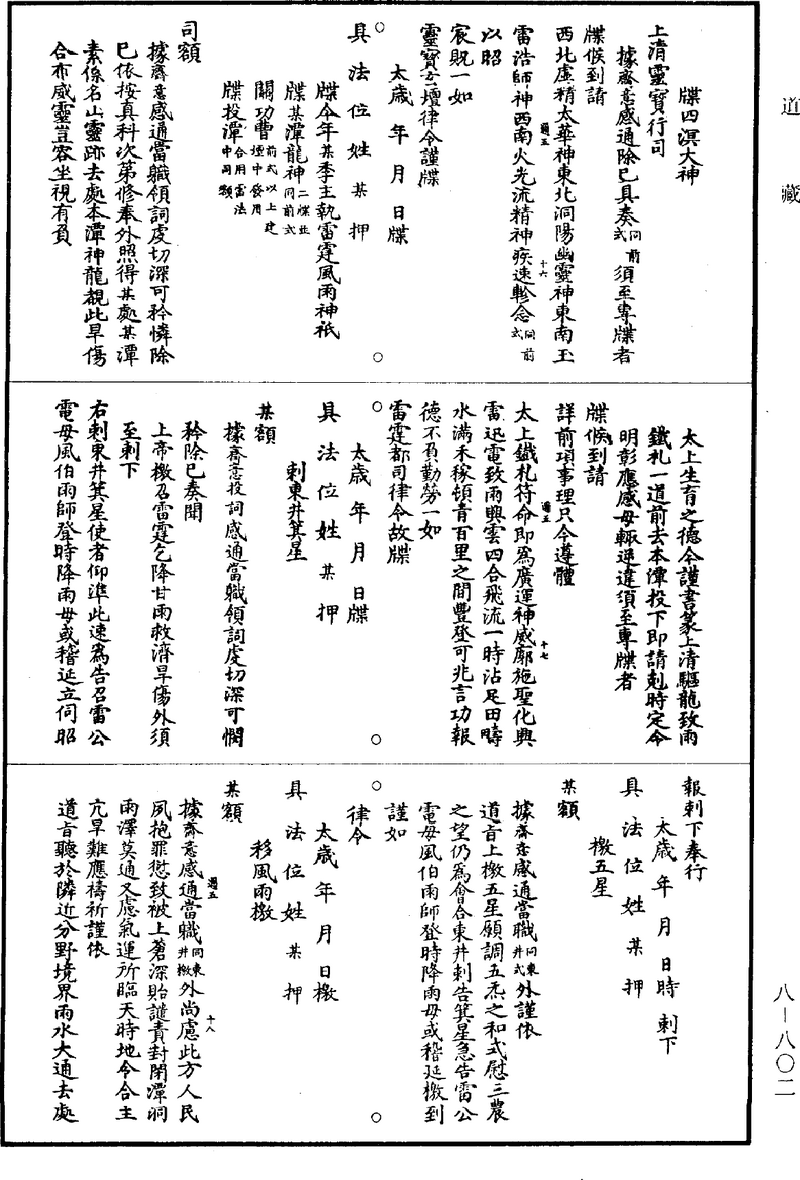 道藏
牒四溟大神
上清靈寶行司
據齋意感通除已具奏同前式須至專牒者
牒候到請
西北虛精太華神東北洞陽幽靈神東南玉
雷浩師神西南火光流精神疾速軫念同前式
以昭
宸貺一如
靈寶玄壇律令謹牒
太歲年月日牒
具法位姓某押
牒今年某季主執雷霆風雨神祇
牒某潭龍神二牒並同前式
關功曹前式以上建壇中發用
牒投潭合用雷法中司額
司額
據齋意感通當職領詞虔切深可矜憐除
已依按真科次第修奉外照得某處某潭
素係名山靈跡去處本潭神龍覩此旱傷
合布威靈豈容坐視有負
太上生育之德今謹書篆上清驅龍致雨
鐵札一道前去本潭投下即請剋時定令
明彰應感毋輒逆違須至專牒者
牒候到請
詳前項事理只今遵體
太上鐵札符命即為廣運神威廓施聖化興
雷迅電致雨興雲四合飛流一時沾足田疇
水滿禾稼頓青百里之間豐登可兆言功報
德不負勤勞一如
雷霆都司律令故牒
太歲年月日牒
具法位姓某押
剌東井箕星
某額
據齋意投詞感通當職領詞虔切深可憫
矜除已奏聞
上帝檄召雷霆乞降甘雨救濟旱傷外須
至剌下
右剌東井箕星使者仰準此速為告召雷公
電母風伯雨師登時降雨毋或稽延立伺昭
報剌下奉行
太歲年月日時剌下
具法位姓某押
檄五星
某額
據齋意感通當職同東井式外謹依
道旨上檄五星願調五炁之和式慰三農
之望仍為會合東井剌告箕星急告雷公
電母風伯雨師登時降雨毋或稽延檄到
謹如
律令
太歲年月日檄
具法位姓某押
移風雨檄
某額
據齋意感通當職同東井檄外尚慮此方人民
夙抱罪愆致被上蒼深貽譴責封閉潭洞
雨澤莫通又慮氣運所臨天時地令合主
亢旱難應禱祈謹依
道旨聽於隣近分野境界雨水大通去處
週五 十六
週五 十七
週五 十八
八－八〇二